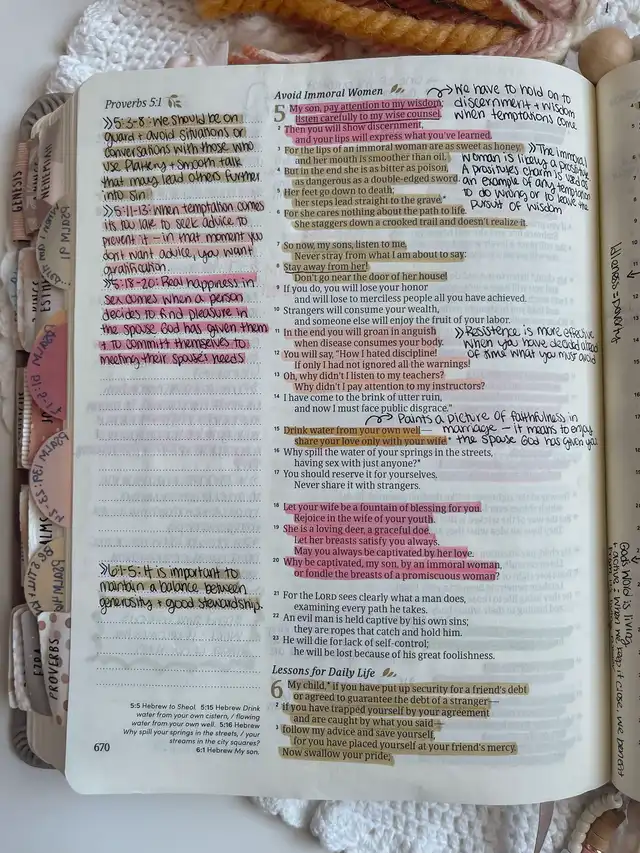 Proverbs 5:1
» 5:3-8: We should be on
guard + avoid situations or
conversations with those who
use flattery + smooth talk
that may lead others further
into sin
» 5:11-13: When temptation comes
it's too late to seek advice to
prevent it - in that moment you
don't want advice, you want
gratification
» 5:18-20: Real happiness in
sex comes when a person
decides to find pleasure in
the spouse God has given them
+ to commit themselves to
meeting their spouse's needs
» 6:1-5: It is important to
maintain a balance between
generosity + good stewardship.
5:5 Hebrew to Sheol. 5:15 Hebrew Drink
water from your own cistern, / flowing
water from your own well. 5:16 Hebrew
Why spill your springs in the streets, / your
streams in the city squares?
6:1 Hebrew My son.
670
Avoid Immoral Women
5 My son, pay attention to my wisdom;
listen carefully to my wise counsel.
2 Then you will show discernment,
and your lips will express what you've learned.
3 For the lips of an immoral woman are as sweet as honey,
and her mouth is smoother than oil.
4 But in the end she is as bitter as poison,
as dangerous as a double-edged sword.
5 Her feet go down to death;
her steps lead straight to the grave.*
6 For she cares nothing about the path to life.
She staggers down a crooked trail and doesn't realize it.
7 So now, my sons, listen to me.
Never stray from what I am about to say:
8 Stay away from her!
Don't go near the door of her house!
9 If you do, you will lose your honor
and will lose to merciless people all you have achieved.
10 Strangers will consume your wealth,
and someone else will enjoy the fruit of your labor.
11 In the end you will groan in anguish
when disease consumes your body.
12 You will say, "How I hated discipline!
If only I had not ignored all the warnings!
13 Oh, why didn't I listen to my teachers?
Why didn't I pay attention to my instructors?
14 I have come to the brink of utter ruin,
and now I must face public disgrace."
15 Drink water from your own well—
share your love only with your wife.*
16 Why spill the water of your springs in the streets,
having sex with just anyone?*
17 You should reserve it for yourselves.
Never share it with strangers.
18 Let your wife be a fountain of blessing for you.
Rejoice in the wife of your youth.
19 She is a loving deer, a graceful doe.
Let her breasts satisfy you always.
May you always be captivated by her love.
20 Why be captivated, my son, by an immoral woman,
or fondle the breasts of a promiscuous woman?
21 For the LORD sees clearly what a man does,
examining every path he takes.
22 An evil man is held captive by his own sins;
they are ropes that catch and hold him.
23 He will die for lack of self-control;
he will be lost because of his great foolishness.
Lessons for Daily Life
6 My child,* if you have put up security for a friend's debt
or agreed to guarantee the debt of a stranger—
2 if you have trapped yourself by your agreement
and are caught by what you said—
3 follow my advice and save yourself,
for you have placed yourself at your friend's mercy.
Now swallow your pride;
We have to hold on to
discernment + wisdom
when temptations come
» The immoral
woman is likely a prostitute
A prostitutes charm is used as
an example of any temptation
to do wrong or to leave the
pursuit of wisdom
» Resistance is more effective
when you have decided ahead
of time what you must avoid
Paints a picture of faithfulness in
marriage - it means to enjoy
the spouse God has given you
GENESIS
EZRA
PROVERBS
God's word is living